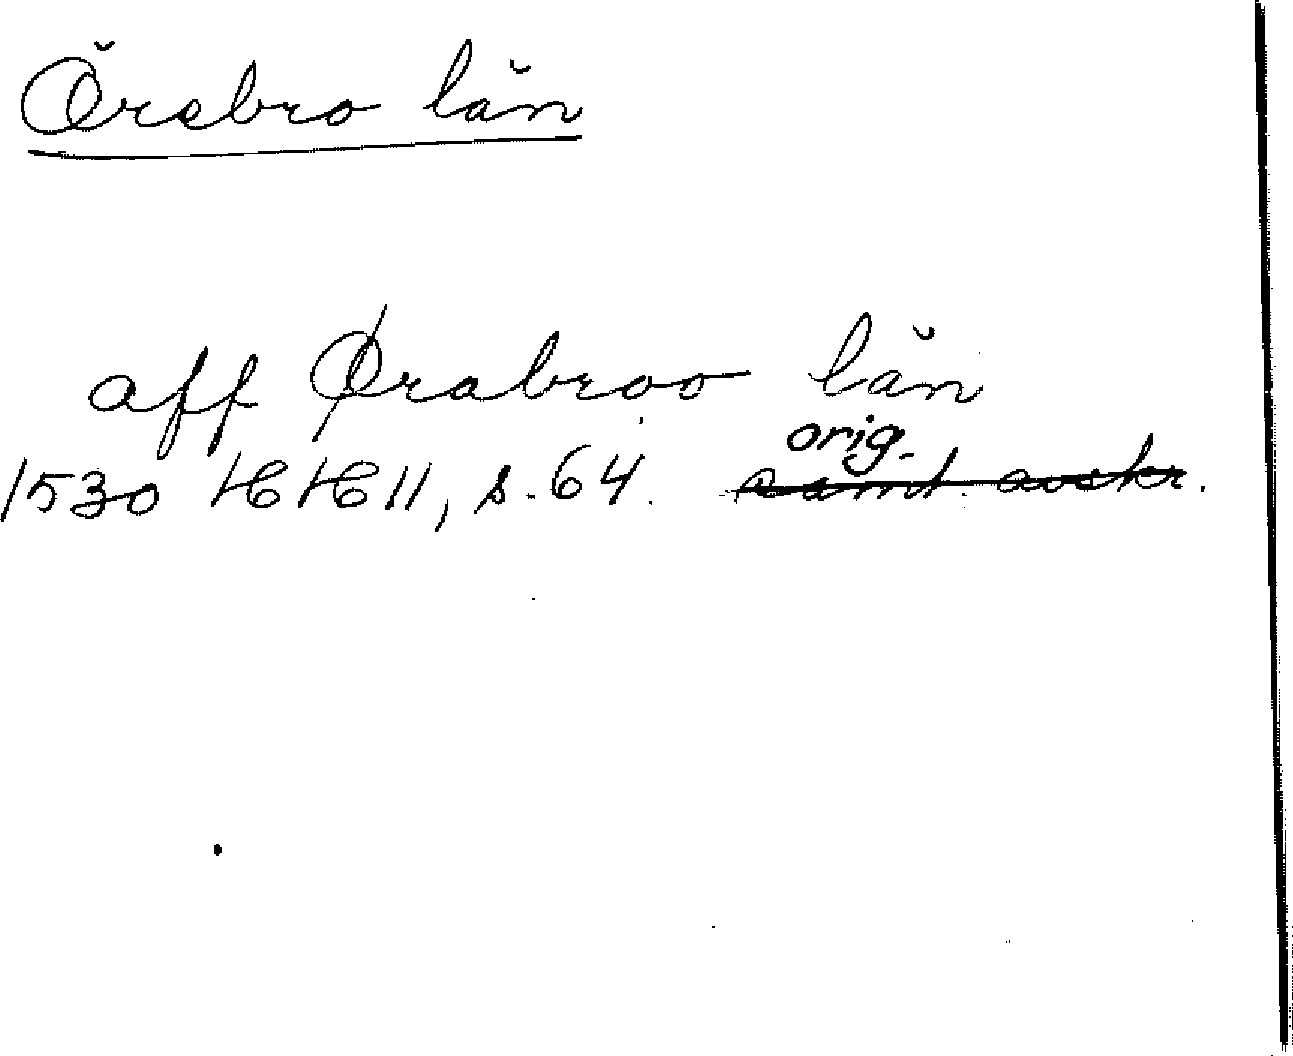 Örebro län
aff Ørabroo län
orig.
1530 HH 11, s. 64. samt. avskr.